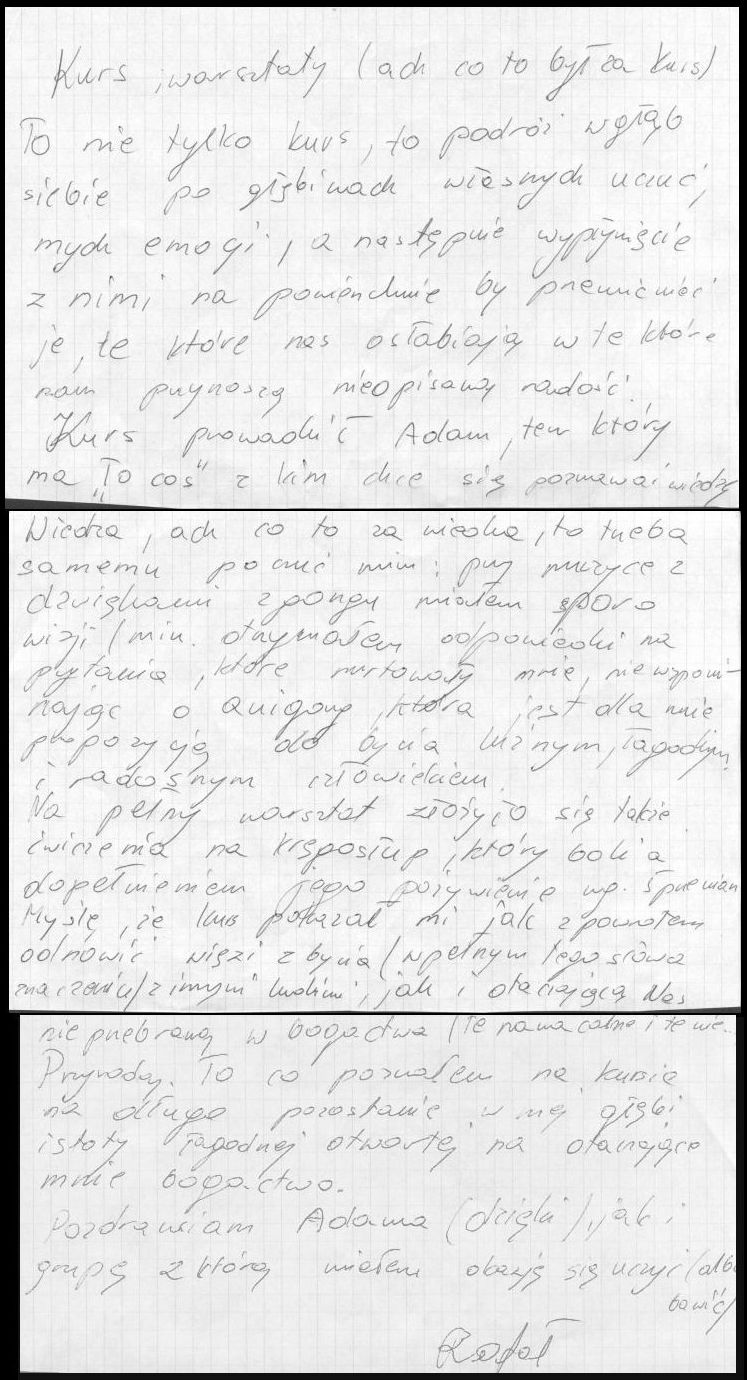 Kurs, warsztaty (ach co to był za kurs)
To nie tylko kurs, to podróż wgłąb
siebie po głębinach własnych uczuć,
mych emocji, a następnie wypłynięcie
z nimi na powierzchnię by przemienić
je, te które nas osłabiają w te które
nam przynoszą nieopisaną radość.
Kurs prowadził Adam, ten który
ma "To coś" z kim chce się poznawać wiedzę
Wiedza, ach co to za wiedza, to trzeba
samemu poczuć min: przy muzyce z
dzwiękami z gongu miałem sporo
wizji / min. otrzymałem odpowiedzi na
pytania, które nurtowały mnie, nie wspomi-
nając o Quigong, która jest dla mnie
propozycją do bycia luźnym, łagodnym
i radosnym człowiekiem.
Na pełny warsztat złożyło się także
ćwiczenia na kręgosłup, który boli a
dopełnieniem jego pożywienie wg. 5 przemian
Myślę, że kurs pokazał mi jak z powrotem
odnowić więzi z bycia (w pełnym tego słowa
znaczeniu) z innymi ludźmi, jak i otaczającą Nas
nieprzebraną w bogactwa (te namacalne i te nie...
Przyrodą. To co poznałem na kursie
na długo pozostanie w mej głębi
istoty łagodnej otwartej na otaczające
mnie bogactwo.
Pozdrawiam Adama (dzięki), jak i
grupę z którą miałem okazję się uczyć (albo
bawić)
Rafał